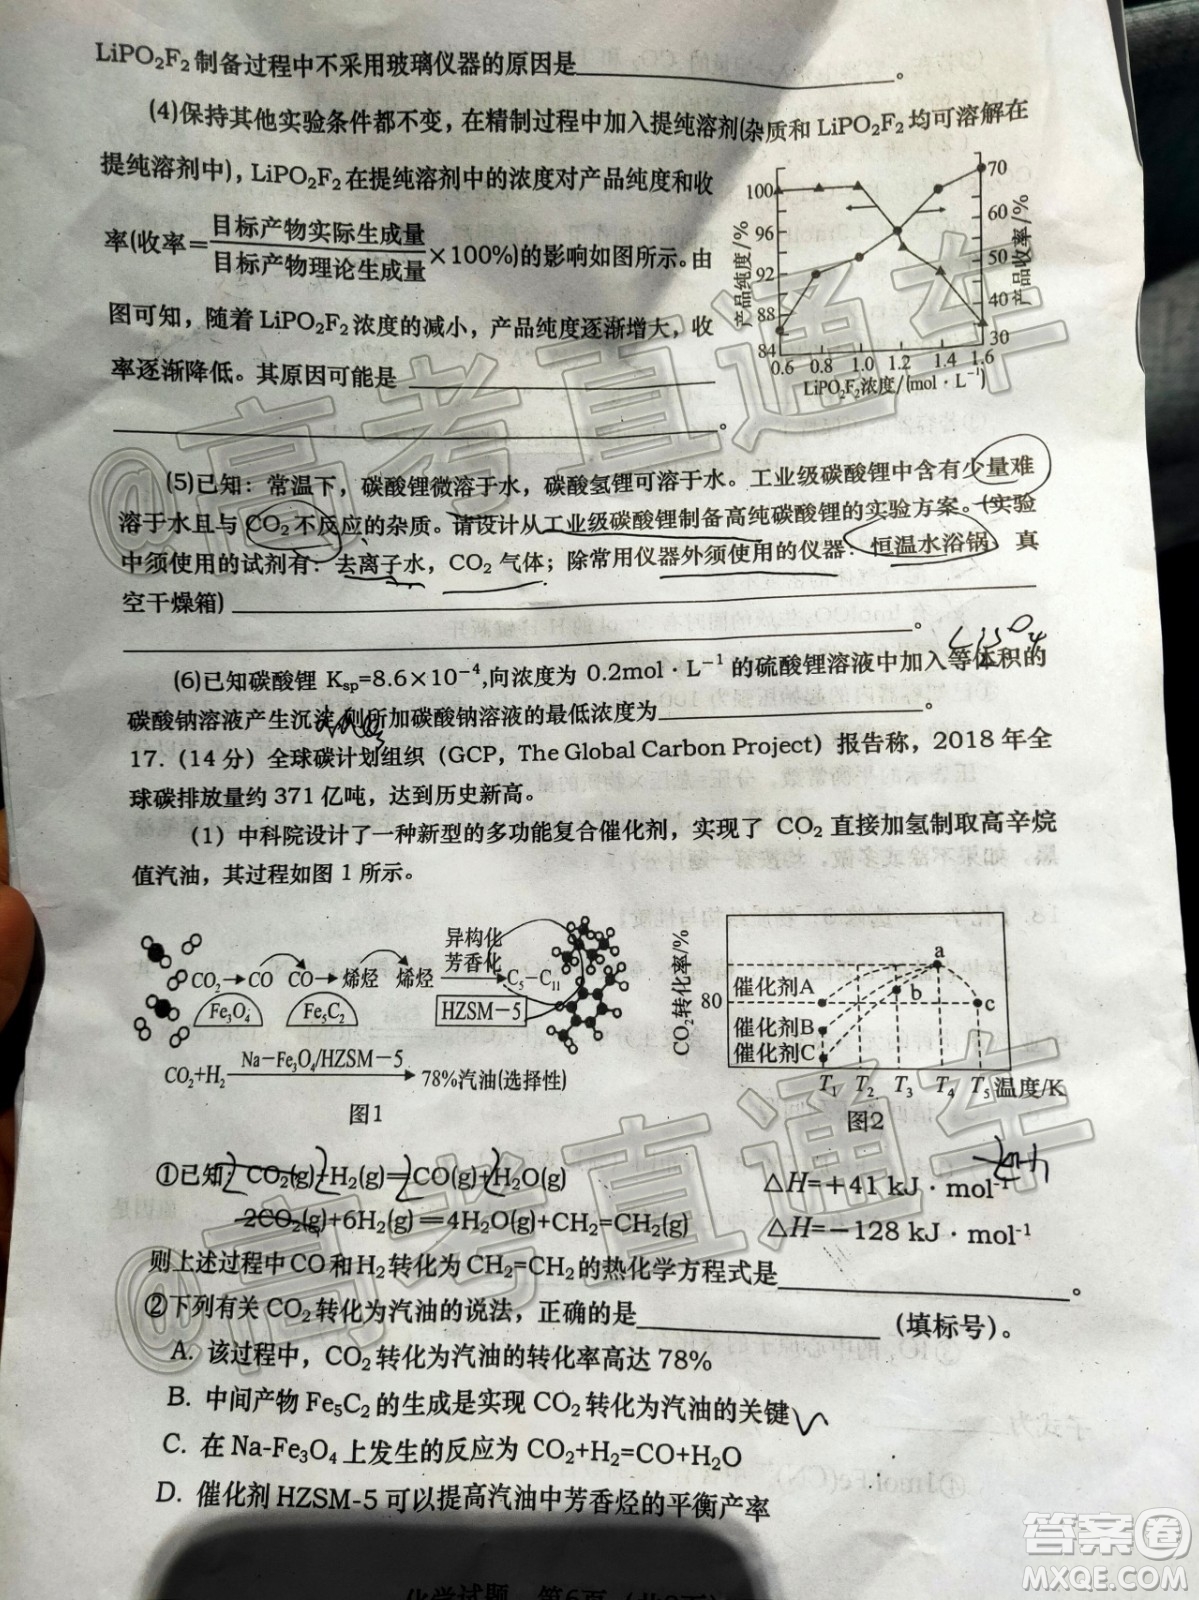 LiPO₂F₂制备过程中不采用玻璃仪器的原因是____________。
(4)保持其他实验条件都不变，在精制过程中加入提纯溶剂(杂质和LiPO₂F₂均可溶解在
提纯溶剂中)，LiPO₂F₂在提纯溶剂中的浓度对产品纯度和收
率(收率=目标产物实际生成量/目标产物理论生成量×100%)的影响如图所示。由
图可知，随着LiPO₂F₂浓度的减小，产品纯度逐渐增大，收
率逐渐降低。其原因可能是____________
____________。
产品纯度/%
100
96
92
88
84
产品收率/%
70
60
50
40
30
0.6 0.8 1.0 1.2 1.4 1.6
LiPO₂F₂浓度/(mol·L⁻¹)
(5)已知：常温下，碳酸锂微溶于水，碳酸氢锂可溶于水。工业级碳酸锂中含有少量难
溶于水且与CO₂不反应的杂质。请设计从工业级碳酸锂制备高纯碳酸锂的实验方案。(实验
中须使用的试剂有：去离子水，CO₂气体；除常用仪器外须使用的仪器：恒温水浴锅 真
空干燥箱)____________
____________。
(6)已知碳酸锂Ksp=8.6×10⁻⁴,向浓度为0.2mol·L⁻¹的硫酸锂溶液中加入等体积的
碳酸钠溶液产生沉淀，则所加碳酸钠溶液的最低浓度为____________。
17.（14分）全球碳计划组织（GCP，The Global Carbon Project）报告称，2018年全
球碳排放量约371亿吨，达到历史新高。
（1）中科院设计了一种新型的多功能复合催化剂，实现了CO₂直接加氢制取高辛烷
值汽油，其过程如图1所示。
CO₂→CO CO→烯烃 烯烃 异构化 芳香化 C₅-C₁₁
Fe₃O₄ Fe₅C₂ HZSM-5
CO₂+H₂ Na-Fe₃O₄/HZSM-5 78%汽油(选择性)
图1
CO₂转化率/%
80
催化剂A
催化剂B
催化剂C
a
b
c
T₁ T₂ T₃ T₄ T₅ 温度/K
图2
①已知：CO₂(g)+H₂(g)=CO(g)+H₂O(g) △H=+41 kJ·mol⁻¹
2CO₂(g)+6H₂(g)=4H₂O(g)+CH₂=CH₂(g) △H=-128 kJ·mol⁻¹
则上述过程中CO和H₂转化为CH₂=CH₂的热化学方程式是____________。
②下列有关CO₂转化为汽油的说法，正确的是____________（填标号）。
A. 该过程中，CO₂转化为汽油的转化率高达78%
B. 中间产物Fe₅C₂的生成是实现CO₂转化为汽油的关键
C. 在Na-Fe₃O₄上发生的反应为CO₂+H₂=CO+H₂O
D. 催化剂HZSM-5可以提高汽油中芳香烃的平衡产率
@高考直通车
@高考直通车
答案圈
MXQE.COM